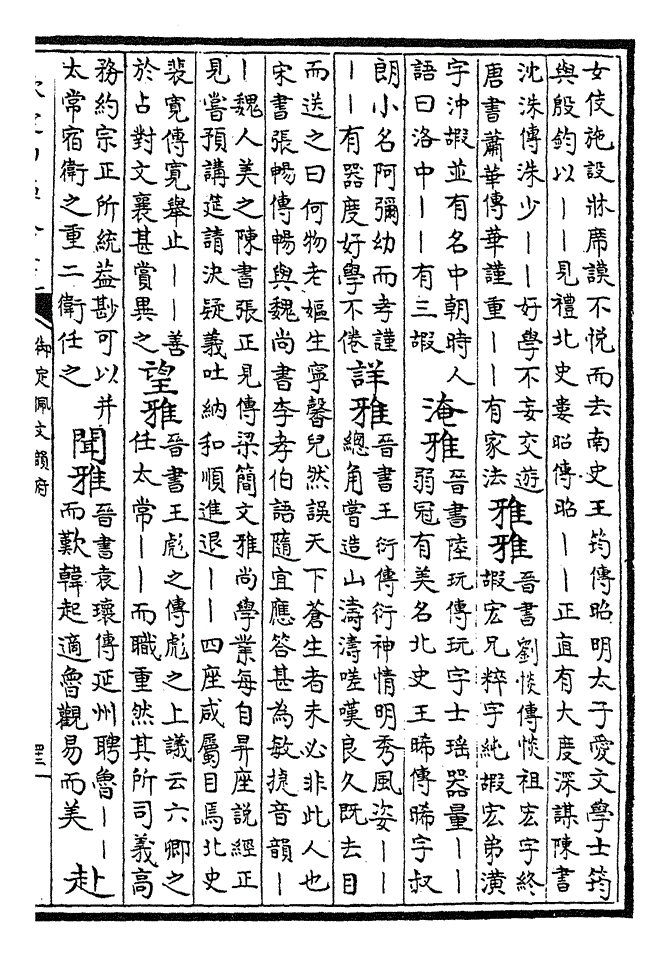 女伎施設牀席謨不悦而去南史王筠傳昭明太子愛文學士筠
與殷鈞以——見禮北史婁昭傳昭——正直有大度深謀陳書
沈洙傳洙少——好學不妄交遊
唐書蕭華傳華謹重——有家法
雅雅
晉書劉惔傳惔祖宏字終
嘏宏兄粹字純嘏宏弟潢
字沖嘏並有名中朝時人
語曰洛中——有三嘏
淹雅
晉書陸玩傳玩字士瑶器量——
弱冠有美名北史王晞傳晞字叔
朗小名阿彌幼而孝謹
——有器度好學不倦
詳雅
晉書王衍傳衍神情明秀風姿——
總角嘗造山濤濤嗟嘆良久既去目
而送之曰何物老嫗生寧馨兒然誤天下蒼生者未必非此人也
宋書張暢傳暢與魏尚書李孝伯語隨宜應答甚為敏捷音韻—
—魏人美之陳書張正見傳梁簡文雅尚學業每自昇座説經正
見嘗預講筵請決疑義吐納和順進退——四座咸屬目焉北史
裴寛傳寛舉止——善
於占對文襄甚賞異之
望雅
晉書王彪之傳彪之上議云六卿之
任太常——而職重然其所司義高
務約宗正所統益尠可以并
太常宿衛之重二衛任之
聞雅
晉書袁瓌傳延州聘魯——
而歎韓起適魯觀易而美
赴
御定佩文韻府